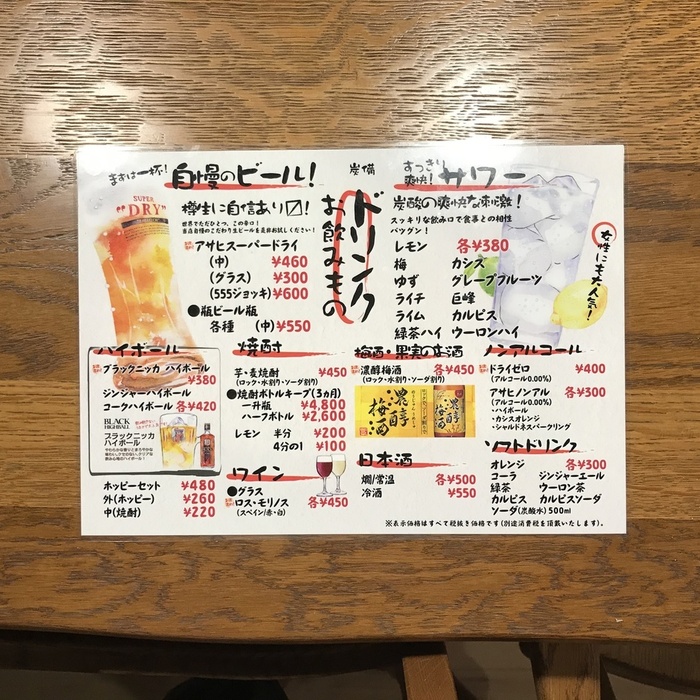 まずは一杯!
自慢のビール!
SUPER
"DRY"
樽生に自信あり〼!
世界でただひとつ、この辛口!
当店自慢のこだわり生ビールを是非お試しください!
アサヒスーパードライ
(中) ¥460
(グラス) ¥300
(555ジョッキ) ¥600
●瓶ビール瓶
各種 (中)¥550
炭備
ドリンク
お飲みもの
すっきり爽快!
サワー
炭酸の爽快な刺激!
スッキリな飲み口で食事との相性
バツグン!
レモン 各¥380
梅 カシス
ゆず グレープフルーツ
ライチ 巨峰
ライム カルピス
緑茶ハイ ウーロンハイ
女性にも大人気!
ハイボール
ブラックニッカ ハイボール
¥380
ジンジャーハイボール
コークハイボール 各¥420
BLACK
HIGHBALL
ブラックニッカ
ハイボール
ホッピーセット ¥480
外(ホッピー) ¥260
中(焼酎) ¥220
焼酎
芋・麦焼酎 ¥450
(ロック・水割り・ソーダ割り)
●焼酎ボトルキープ(3ヵ月)
一升瓶 ¥4,800
ハーフボトル ¥2,600
レモン 半分 ¥200
4分の1 ¥100
ワイン
●グラス
ロス・モリノス 各¥450
(スペイン/赤・白)
梅酒・果実のお酒
濃醇梅酒 各¥450
(ロック・水割り・ソーダ割り)
濃醇梅酒
日本酒
燗/常温 各¥500
冷酒 ¥550
ノンアルコール
ドライゼロ ¥400
(アルコール0.00%)
アサヒノンアル 各¥300
(アルコール0.00%)
・ハイボール
・カシスオレンジ
・シャルドネスパークリング
ソフトドリンク
オレンジ 各¥300
コーラ ジンジャーエール
緑茶 ウーロン茶
カルピス カルピスソーダ
ソーダ(炭酸水)500ml
※表示価格はすべて税抜き価格です(別途消費税を頂戴いたします)。